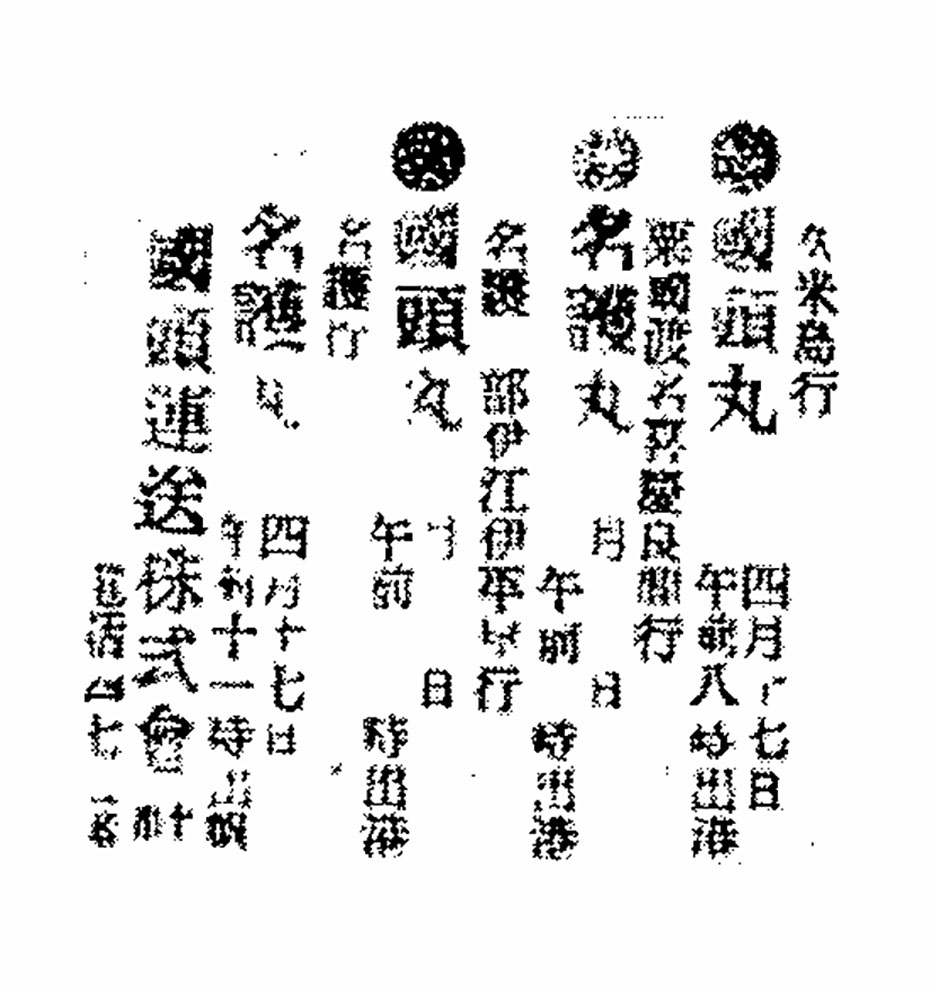 久米島行
國頭丸
四月十七日
午前八時出港
粟國渡名喜慶良間行
名護丸
月 日
午前 時出港
名護 部伊江伊平屋行
國頭丸
月 日
午前 時出港
名護行
名護丸
四月十七日
午前十一時出帆
國頭運送株式會社
電話四七